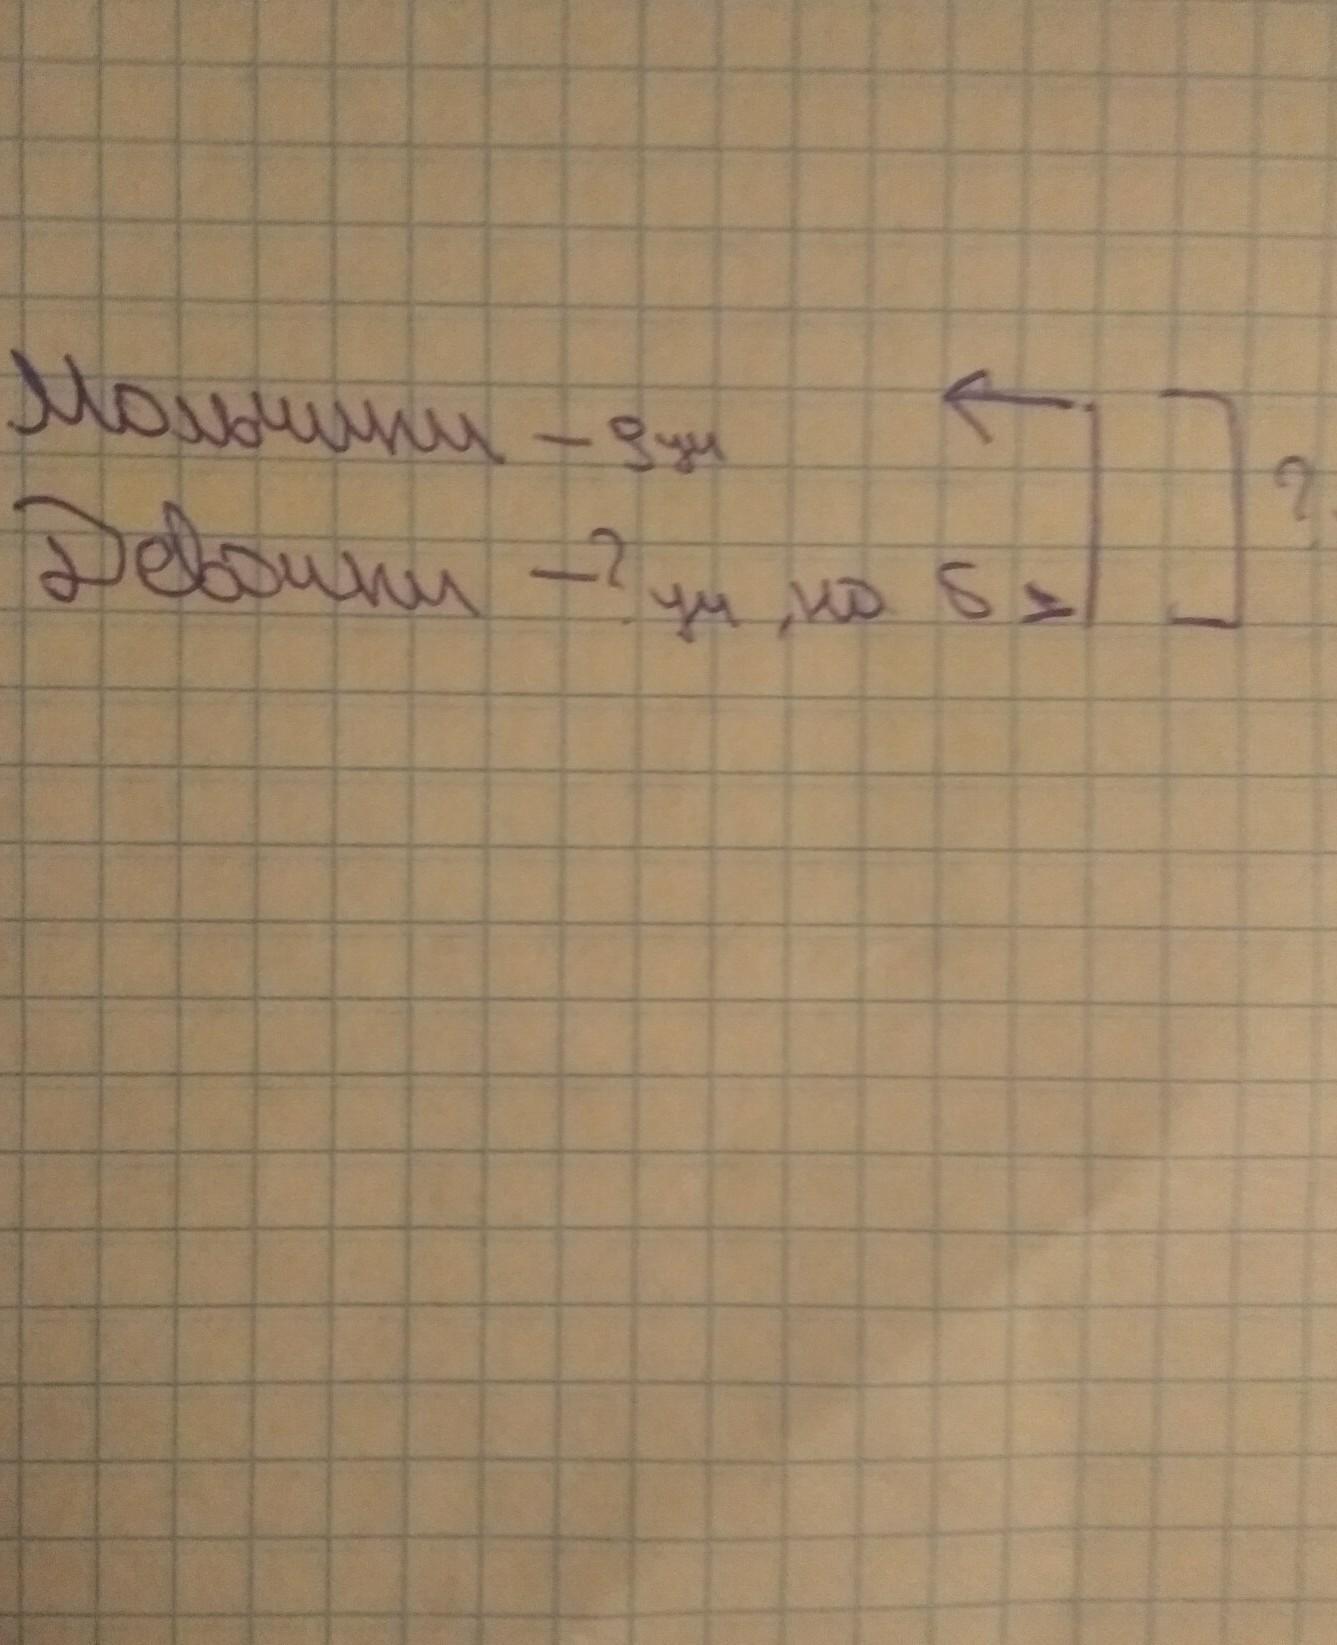 Мальчики - 9 уч ?
Девочки - ? уч, на 5 >